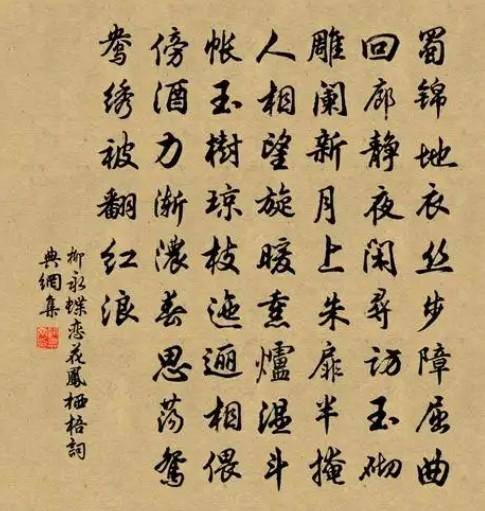 蜀锦地衣丝步障屈曲
回廊静夜闲尋访玉砌
雕阑新月上朱扉半掩
人相望旋暖熏爐温斗
帐玉樹琼枝迤逦相偎
傍酒力渐濃春思荡鸳
鸯绣被翻红浪
柳永蝶恋花鳳栖梧詞
典網集